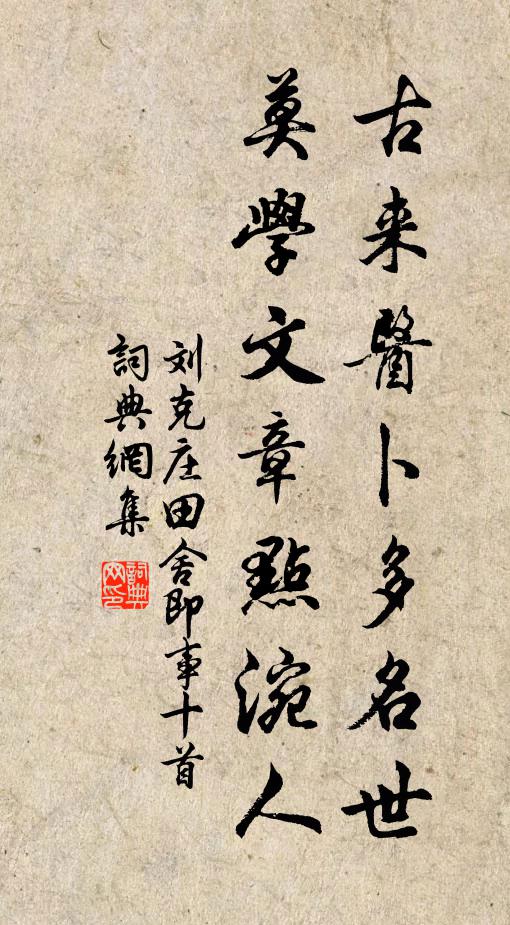 古来醫卜多名世
莫學文章點涴人
刘克庄田舍即事十首
詞典網集
詞典网印